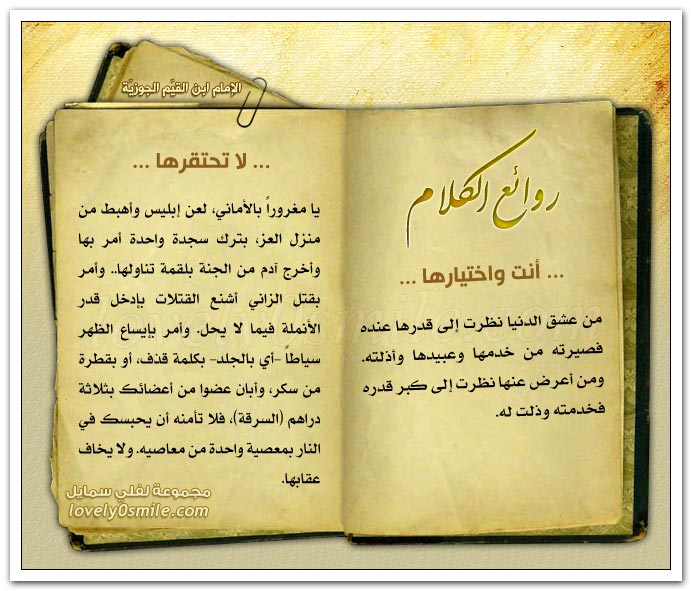 الإمام ابن القيَّم الجوزيَّة
روائع الكلام
... أنت واختيارها ...
من عشق الدنيا نظرت إلى قدرها عنده
فصيرته من خدمها وعبيدها وأذلته.
ومن أعرض عنها نظرت إلى كبر قدره
فخدمته وذلت له.
... لا تحتقرها ...
يا مغروراً بالأماني، لعن إبليس وأهبط من
منزل العز، بترك سجدة واحدة أمر بها
وأخرج آدم من الجنة بلقمة تناولها.. وأمر
بقتل الزاني أشنع القتلات بإدخل قدر
الأنملة فيما لا يحل. وأمر بإيساع الظهر
سياطاً -أي بالجلد- بكلمة قذف، أو بقطرة
من سكر، وأبان عضوا من أعضائك بثلاثة
دراهم (السرقة)، فلا تأمنه أن يحبسك في
النار بمعصية واحدة من معاصيه. ولا يخاف
عقابها.
مجموعة لفلي سمايل
lovely0smile.com